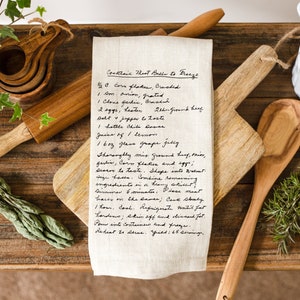 Cocktail Meat Balls to Freeze
½ c corn flakes, crushed
1 sm. onion, grated
1 clove garlic, crushed
2 eggs, beaten 2 lbs ground beef
Salt & pepper to taste
1 bottle Chili Sauce
Juice of 1 lemon
1 6 oz glass grape jelly
Thoroughly mix ground beef, onion,
garlic, corn flakes and eggs,
season to taste. Shape into walnut
size balls. Combine remaining
ingredients in a heavy skillet,
simmer 5 minutes. Place meat
balls in the sauce, cook slowly
1 hour. Cool. Refrigerate until fat
hardens, skim off and discard fat.
Pour into container and freeze.
Reheat to serve. Yield: 65 servings.